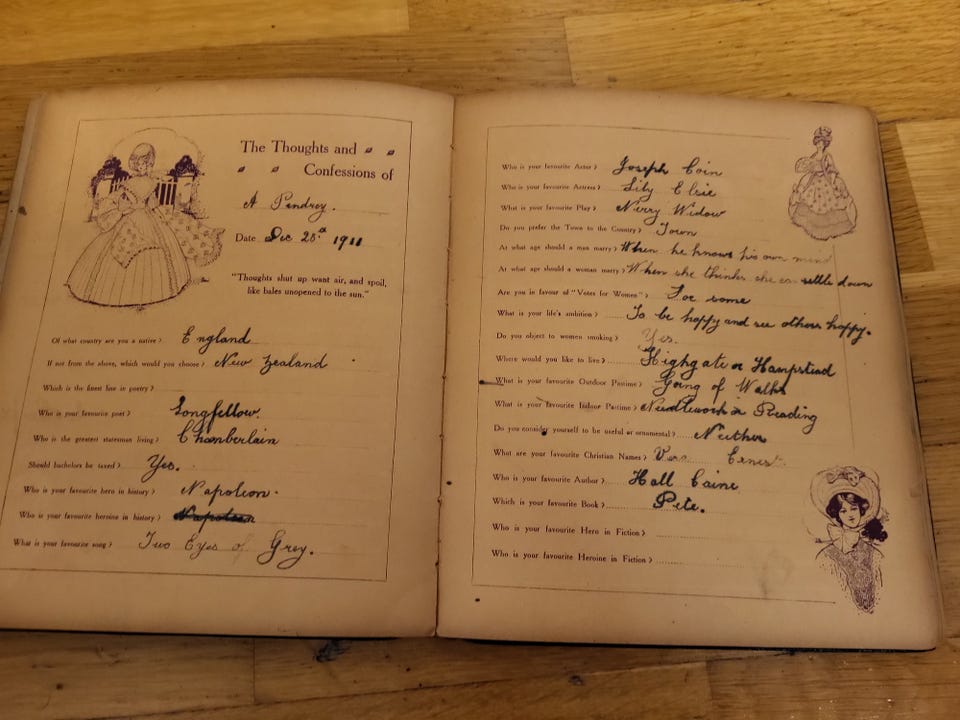 The Thoughts and
Confessions of
A Pendrey.
Date Dec 25th 1911
"Thoughts shut up want air, and spoil,
like bales unopened to the sun."
Of what country are you a native? England
If not from the above, which would you choose? New Zealand
Which is the finest line in poetry?
Who is your favourite poet? Longfellow.
Who is the greatest statesman living? Chamberlain
Should bachelors be taxed? Yes.
Who is your favourite hero in history? Napoleon.
Who is your favourite heroine in history? Napoleon
What is your favourite song? Two Eyes of Grey.
Who is your favourite Actor? Joseph Coin
Who is your favourite Actress? Lily Elsie
What is your favourite Play? Merry Widow
Do you prefer the Town to the Country? Town
At what age should a man marry? When he knows his own mind
At what age should a woman marry? When she thinks she can settle down
Are you in favour of "Votes for Women"? For some
What is your life's ambition? To be happy and see others happy.
Do you object to women smoking? Yes.
Where would you like to live? Highgate or Hampstead
What is your favourite Outdoor Pastime? Going of Walks
What is your favourite Indoor Pastime? Needlework or Reading
Do you consider yourself to be useful or ornamental? Neither
What are your favourite Christian Names? Vera Ernest
Who is your favourite Author? Hall Caine
Which is your favourite Book? Pete.
Who is your favourite Hero in Fiction?
Who is your favourite Heroine in Fiction?